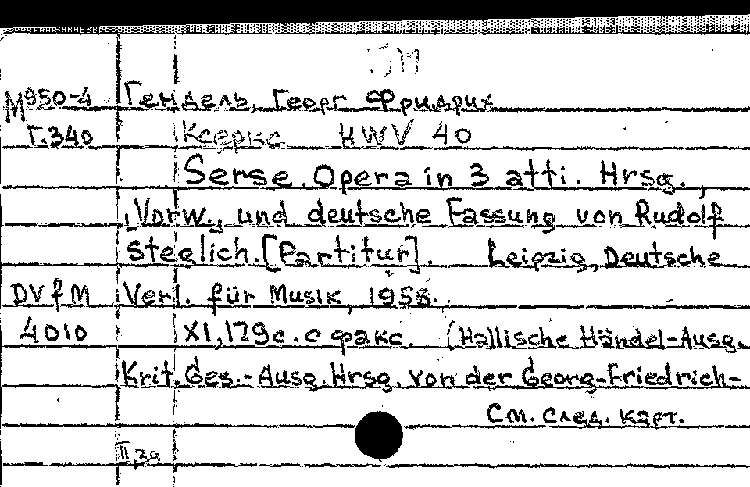 М950-4 Гендель, Георг Фридрих
Г.340 Ксеркс HWV 40
Serse. Opera in 3 atti. Hrsg.,
Vorw., und deutsche Fassung von Rudolf
Steglich. [Partitur]. Leipzig, Deutsche
DVfM Verl. für Musik, 1958.
4010 XI, 179 с. с факс. (Hallische Händel-Ausg.
Krit. Ges.-Ausg. Hrsg. von der Georg-Friedrich-
См. след. карт.